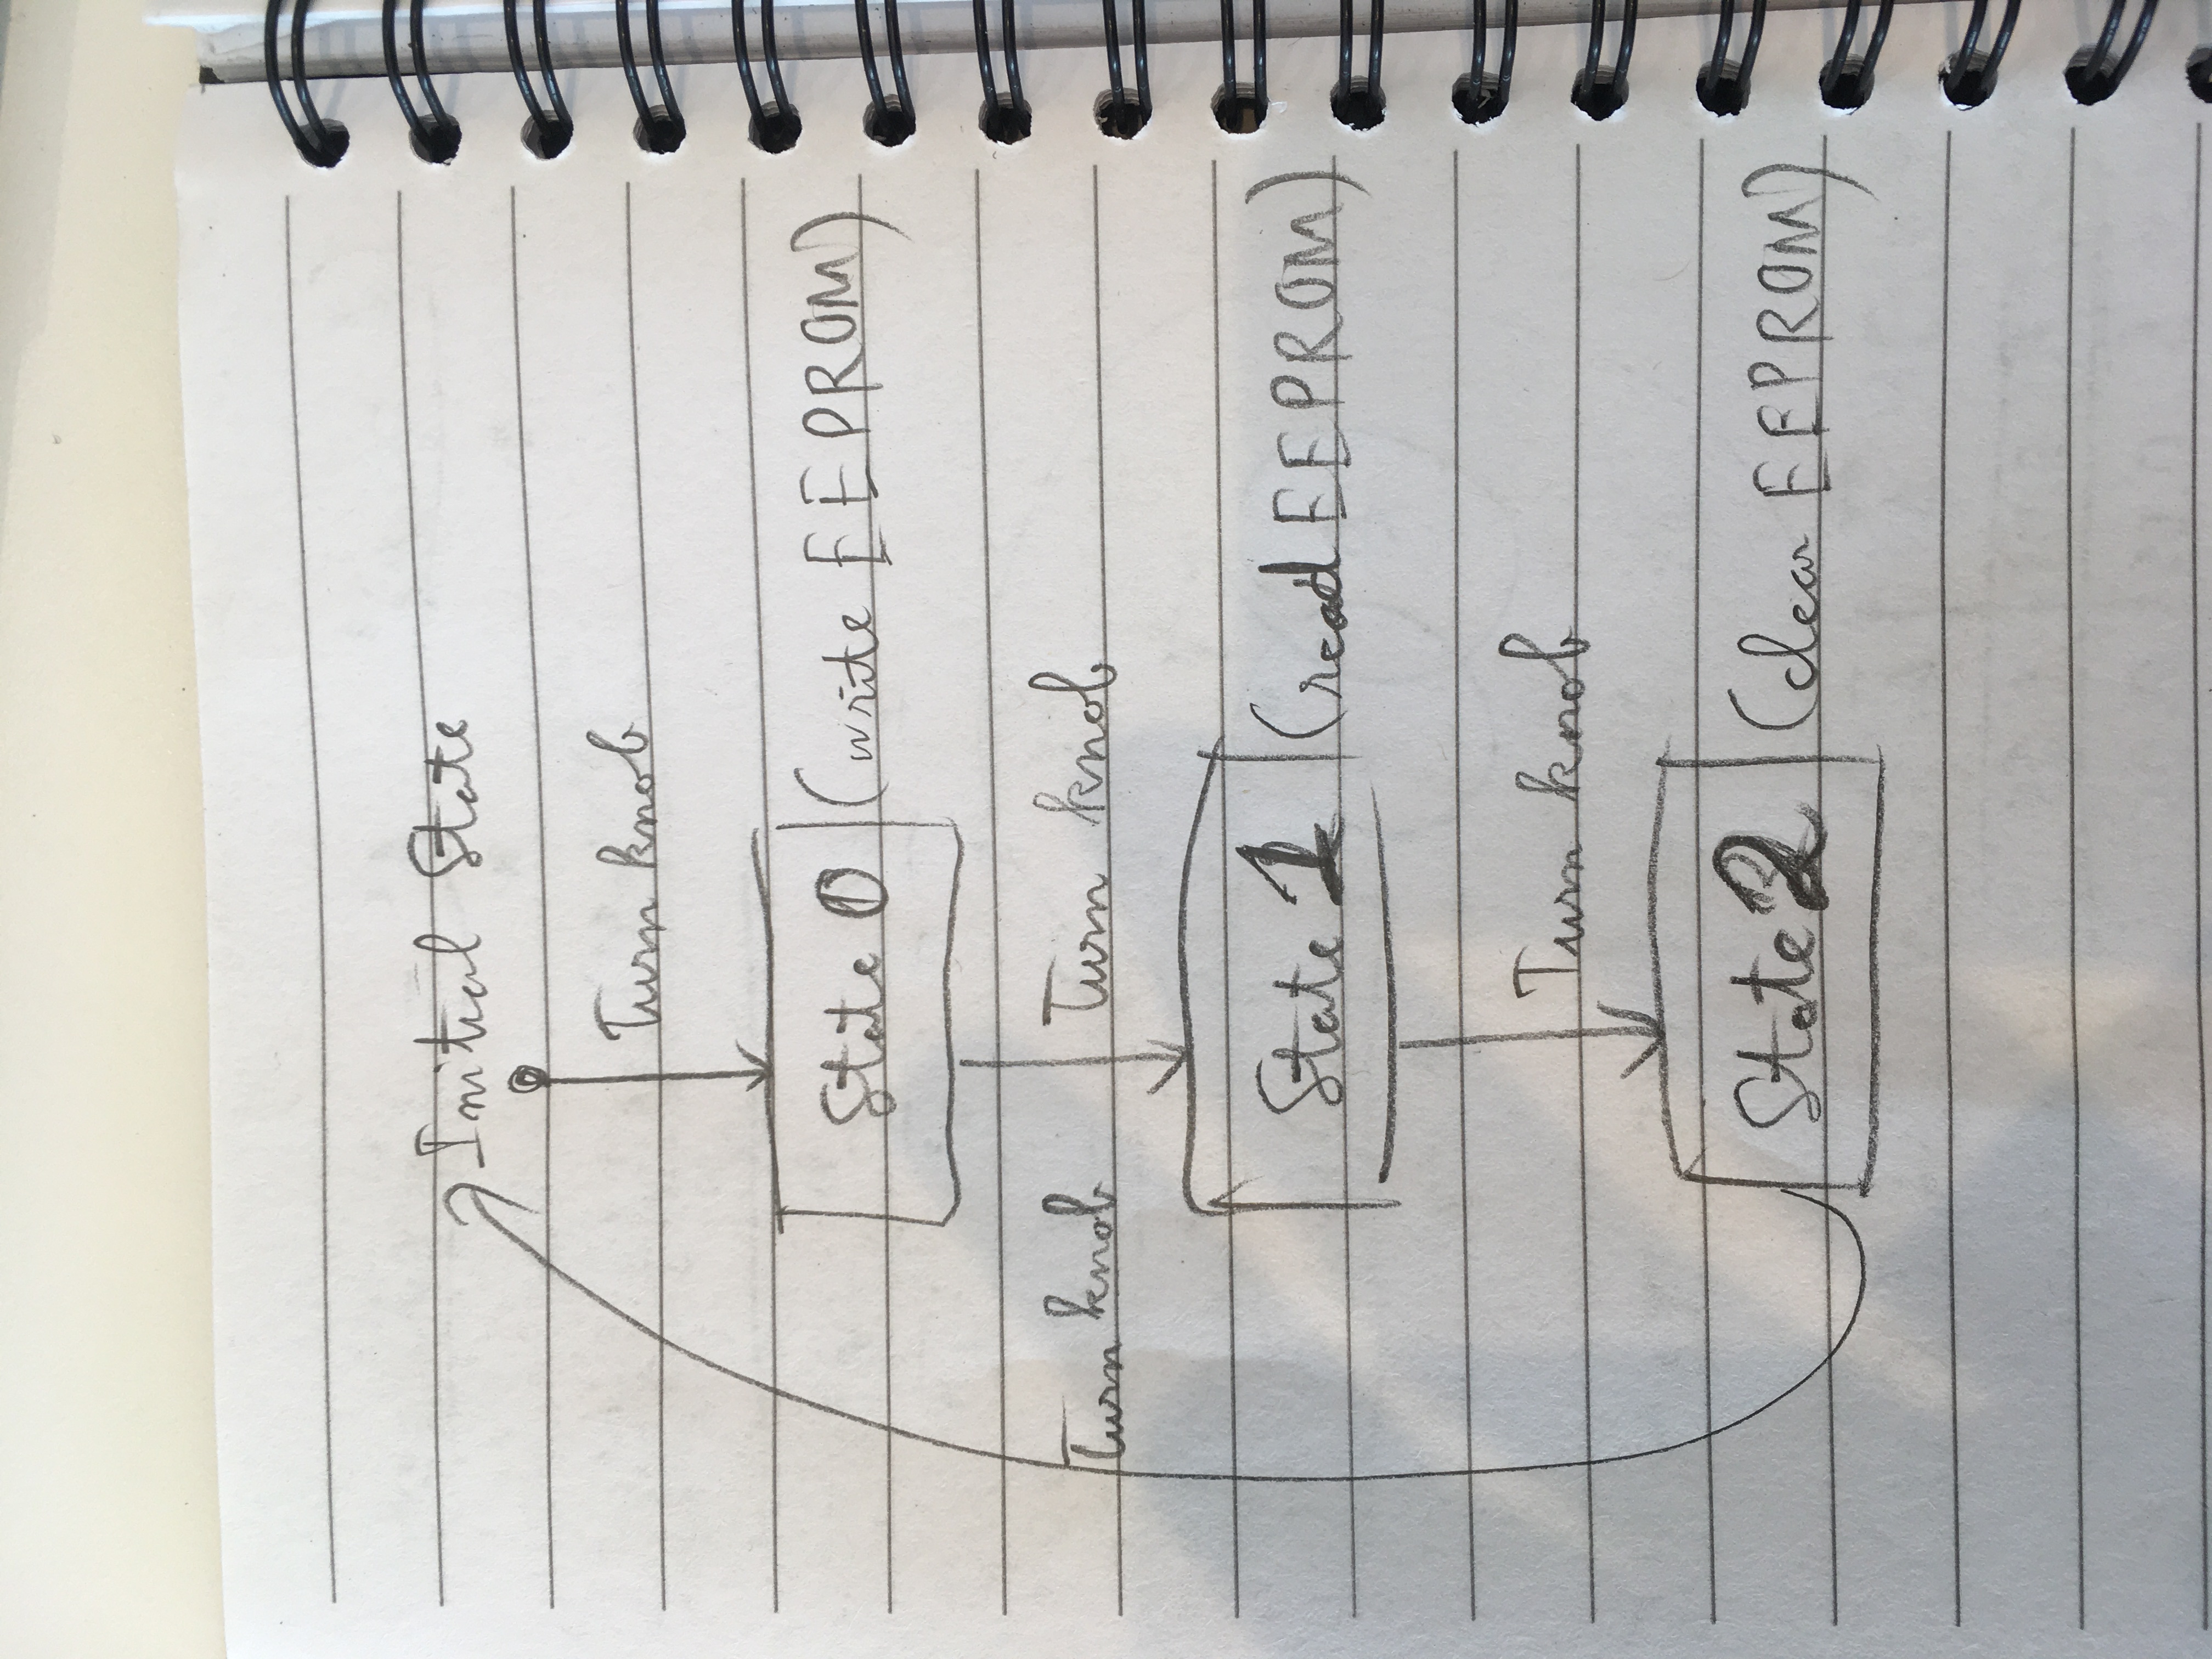 Initial State
Turn knob
State 0 (write EEPROM)
Turn knob Turn knob
State 1 (read EEPROM)
Turn knob
State 2 (clear EEPROM)